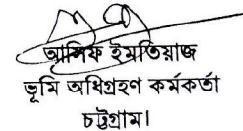 আসিফ ইমতিয়াজ
ভূমি অধিগ্রহণ কর্মকর্তা
চট্টগ্রাম।